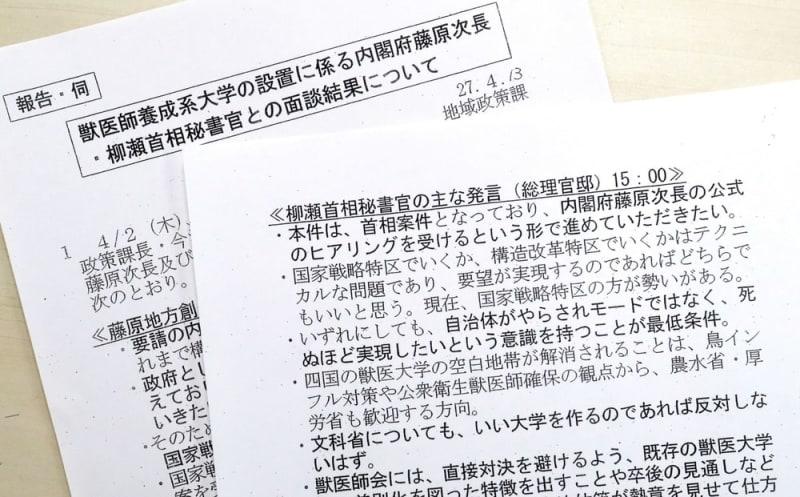 報告・伺
獣医師養成系大学の設置に係る内閣府藤原次長
・柳瀬首相秘書官との面談結果について
27.4.13
地域政策課
1 4/2（木）
政策課長・今
藤原次長及び
次のとおり。
≪藤原地方創
・要請の内
れまで構
・政府とし
えてお
いきた
・そのため
国家戦
・国家戦
≪柳瀬首相秘書官の主な発言（総理官邸）15：00≫
・本件は、首相案件となっており、内閣府藤原次長の公式
のヒアリングを受けるという形で進めていただきたい。
・国家戦略特区でいくか、構造改革特区でいくかはテクニ
カルな問題であり、要望が実現するのであればどちらで
もいいと思う。現在、国家戦略特区の方が勢いがある。
・いずれにしても、自治体がやらされモードではなく、死
ぬほど実現したいという意識を持つことが最低条件。
・四国の獣医大学の空白地帯が解消されることは、鳥イン
フル対策や公衆衛生獣医師確保の観点から、農水省・厚
労省も歓迎する方向。
・文科省についても、いい大学を作るのであれば反対しな
いはず。
・獣医師会には、直接対決を避けるよう、既存の獣医大学
差別化を図った特徴を出すことや卒後の見通しなど